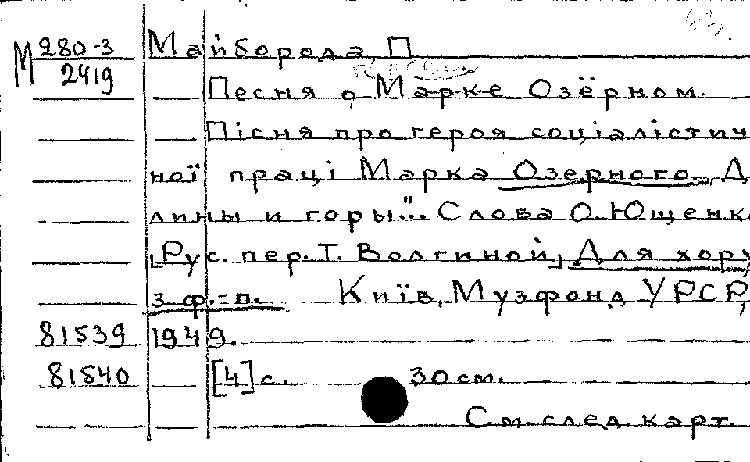 М 280-3 Майборода П
2419
Песня о Марке Озёрном.
Пісня про героя соціалістич
ної праці Марка Озерного. Д
лины и горы"... Слова О. Ющенк
[Рус. пер. Т. Волгиной] Для хору
з ф.-п. Київ, Музфонд УРСР,
81539 1949.
81540 [4] с. 30 см.
См. след. карт.